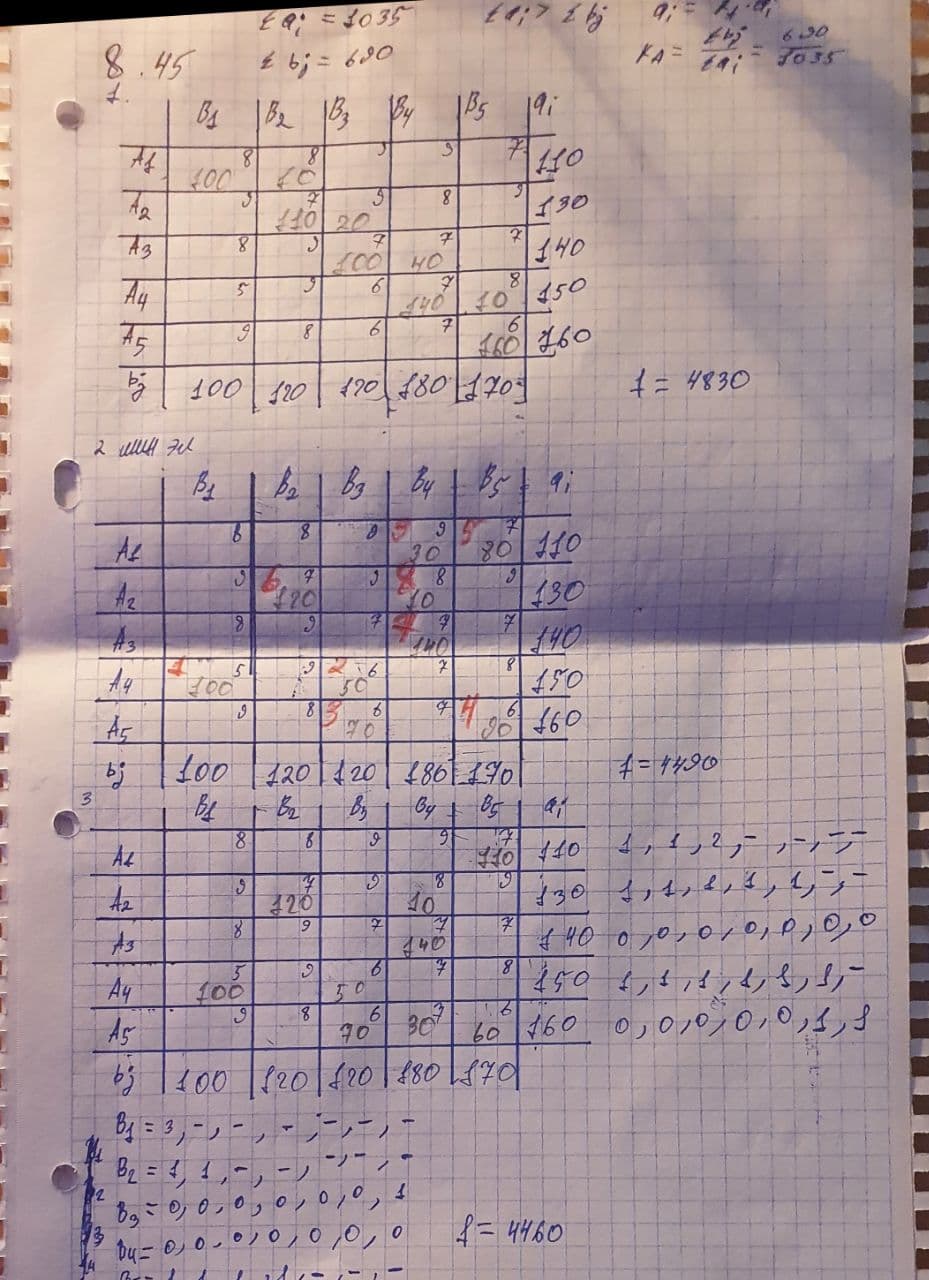 Σ ai = 1035 Σ ai > Σ bj
8.45 Σ bj = 690 KA = Σ bj / Σ ai = 690 / 1035
1.
B1 B2 B3 B4 B5 ai
A1 8 100 8 10 9 9 7 110
A2 9 7 110 9 20 8 9 130
A3 8 9 7 100 7 40 7 140
A4 5 9 6 7 140 8 10 150
A5 9 8 6 7 6 160 160
bj 100 120 120 180 170 f = 4830
2 мин эл
B1 B2 B3 B4 B5 ai
A1 8 8 9 9 9 30 5 7 80 110
A2 9 6 7 120 9 8 8 10 9 130
A3 8 9 7 7 7 140 7 140
A4 1 5 100 9 2 6 50 7 8 150
A5 9 8 3 6 70 7 4 6 90 160
bj 100 120 120 180 170 f = 4490
3
B1 B2 B3 B4 B5 ai
A1 8 8 9 9 7 110 110 1, 1, 2, -, -, -, -
A2 9 7 120 9 8 10 9 130 1, 1, 1, 1, 1, -, -
A3 8 9 7 7 140 7 140 0, 0, 0, 0, 0, 0, 0
A4 5 100 9 6 50 7 8 150 1, 1, 1, 1, 1, 1, -
A5 9 8 6 70 7 30 6 60 160 0, 0, 0, 0, 0, 1, 1
bj 100 120 120 180 170
B1 = 3, -, -, -, -, -, -
B2 = 1, 1, -, -, -, -, -
B3 = 0, 0, 0, 0, 0, 0, 1
B4 = 0, 0, 0, 0, 0, 0, 0 f = 4460